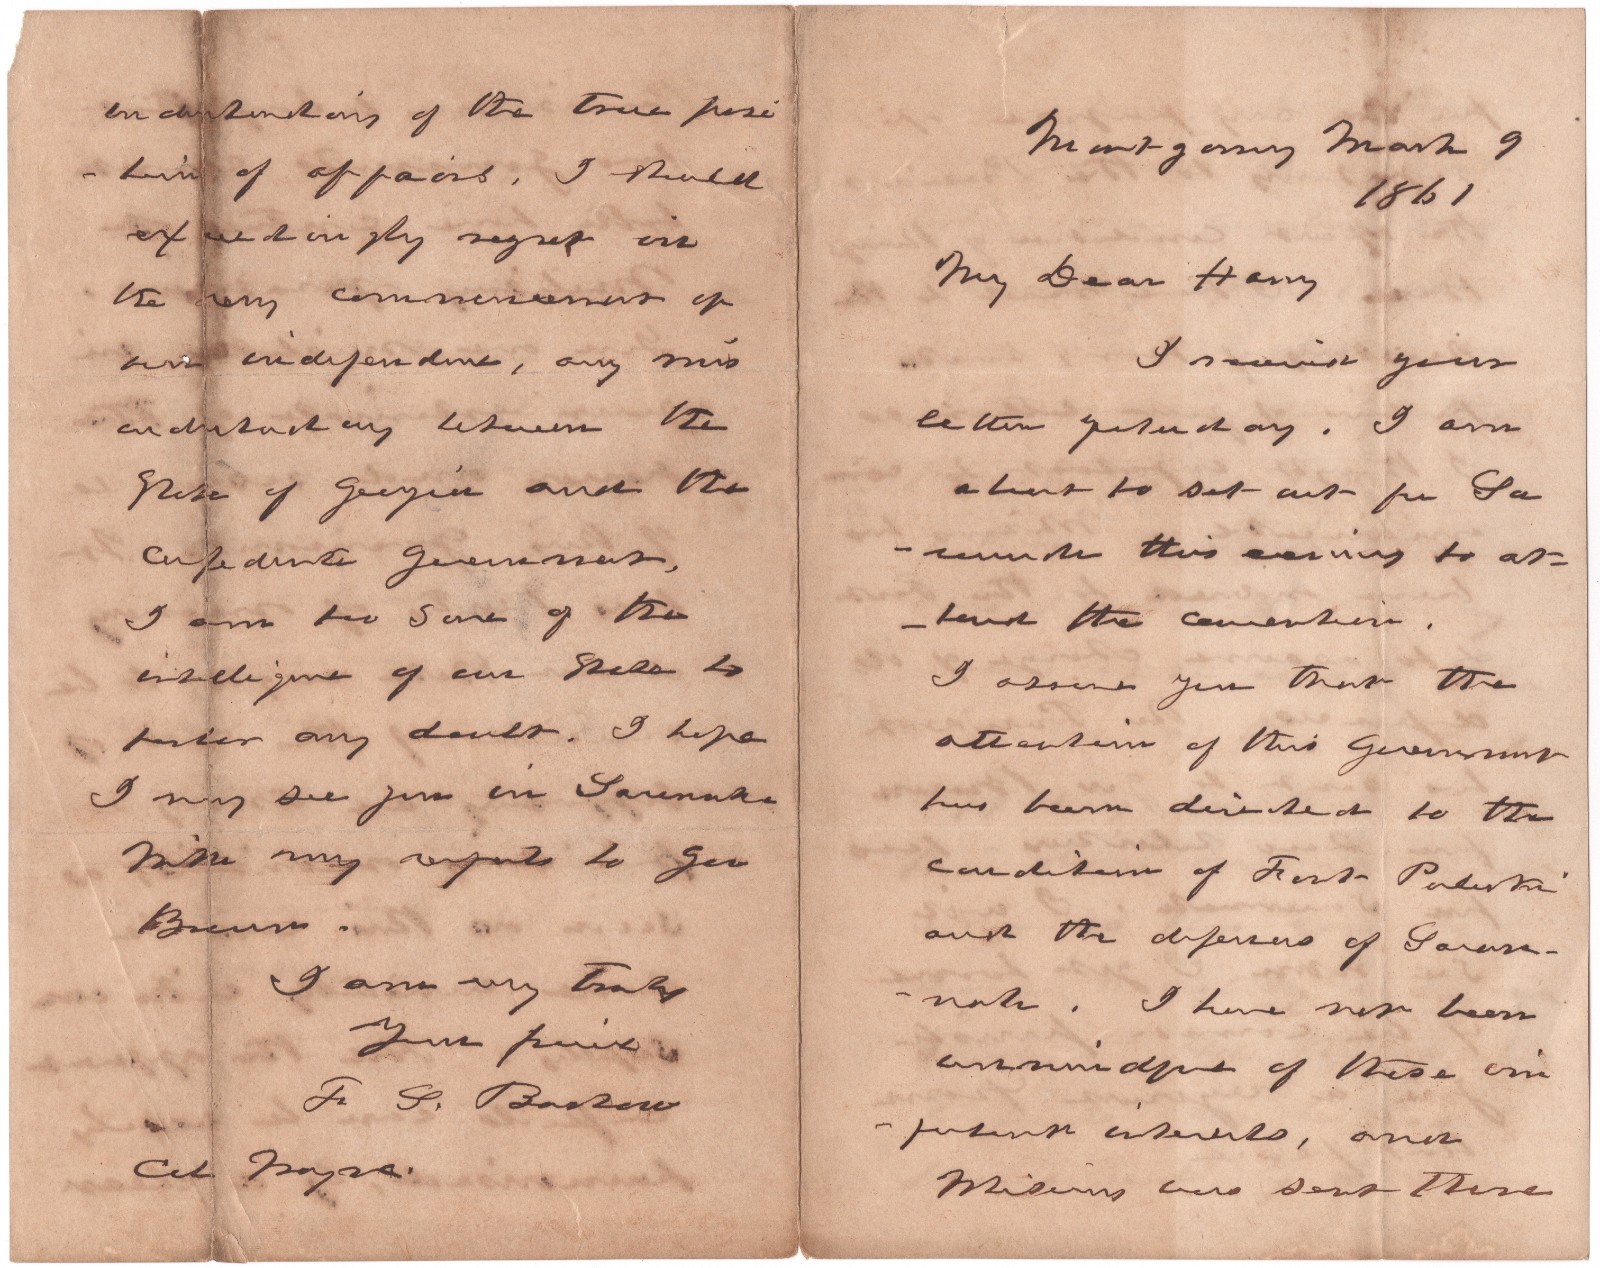 Montgomery March 9
1861
My Dear Harry
I received your
letter yesterday. I am
about to set out for Sa
-vannah this evening to at-
-tend the convention.
I assure you that the
attention of this Government
has been directed to the
condition of Fort Pulaski
and the defenses of Savan-
-nah. I have not been
unmindful of these im
-portant interests, and
was sent there
understanding of the true posi
-tion of affairs. I should
exceedingly regret in
the very commencement of
our independence, any mis
understanding between the
State of Georgia and the
Confederate Government,
I am too sure of the
intelligence of our State to
foster any doubt. I hope
I may see you in Savannah
With my respects to Gov
Brown.
I am very truly
Your friend
F. S. Bartow
Col Wayne.